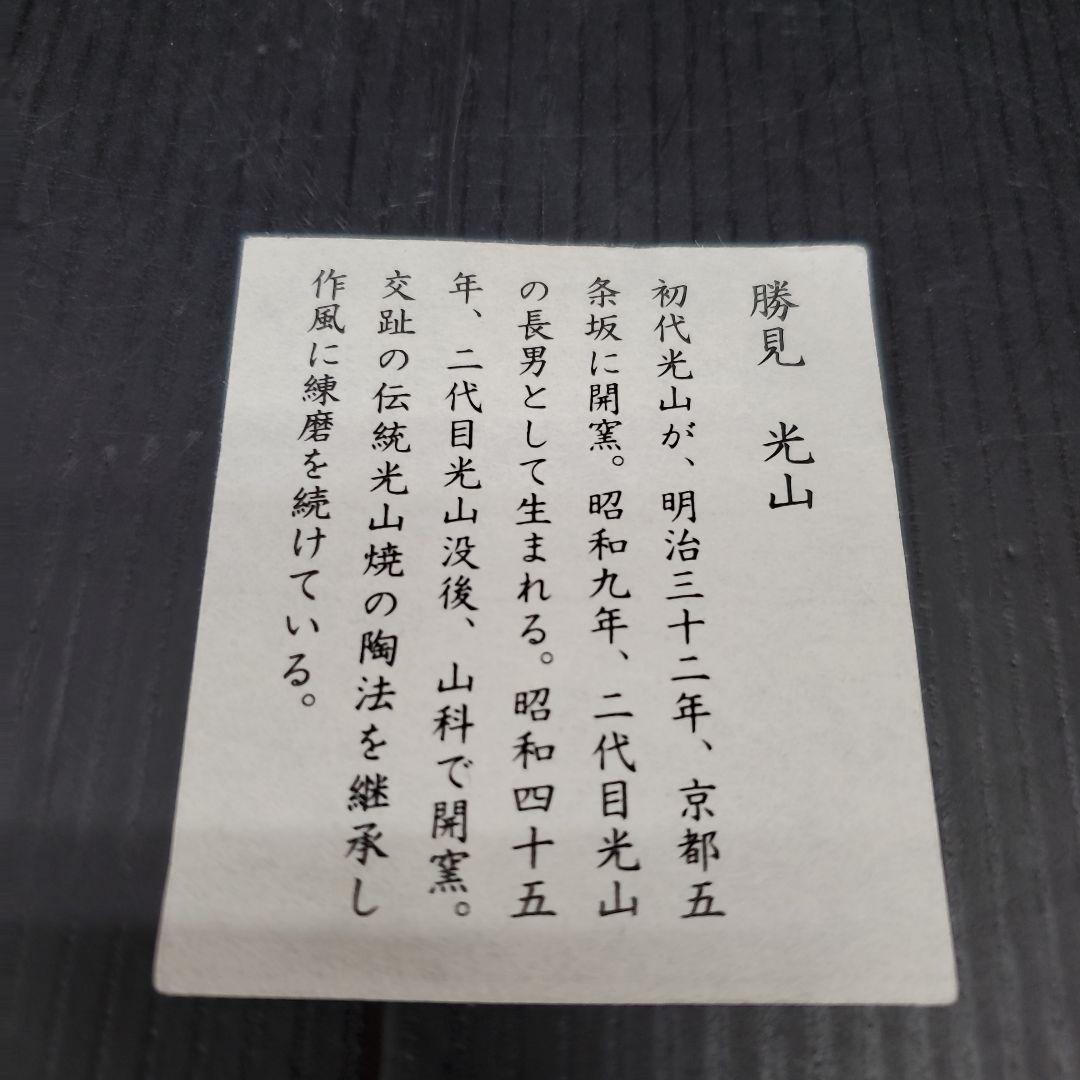 勝見　光山
初代光山が、明治三十二年、京都五
条坂に開窯。昭和九年、二代目光山
の長男として生まれる。昭和四十五
年、二代目光山没後、山科で開窯。
交趾の伝統光山焼の陶法を継承し
作風に練磨を続けている。